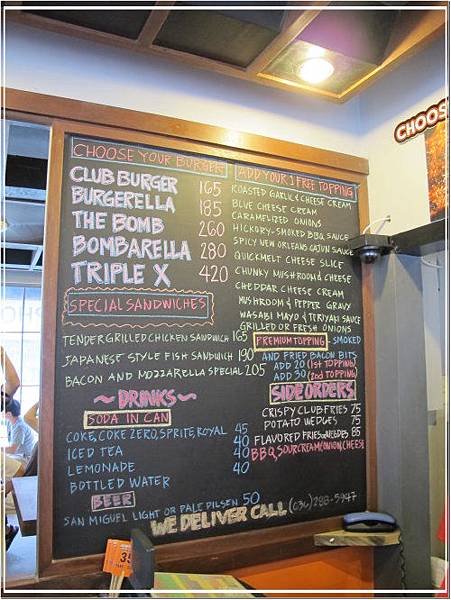 CHOOSE YOUR BURGER
CLUB BURGER 165
BURGERELLA 185
THE BOMB 260
BOMBARELLA 280
TRIPLE X 420
SPECIAL SANDWICHES
TENDER GRILLED CHICKEN SANDWICH 165
JAPANESE STYLE FISH SANDWICH 190
BACON AND MOZZARELLA SPECIAL 205
DRINKS
SODA IN CAN
COKE, COKE ZERO, SPRITE, ROYAL 45
ICED TEA 40
LEMONADE 40
BOTTLED WATER 40
BEER
SAN MIGUEL LIGHT OR PALE PILSEN 50
ADD YOUR 1 FREE TOPPING
ROASTED GARLIC & CHEESE CREAM
BLUE CHEESE CREAM
CARAMELIZED ONIONS
HICKORY-SMOKED BBQ SAUCE
SPICY NEW ORLEANS CAJUN SAUCE
QUICKMELT CHEESE SLICE
CHUNKY MUSHROOM & CHEESE
CHEDDAR CHEESE CREAM
MUSHROOM & PEPPER GRAVY
WASABI MAYO & TERIYAKI SAUCE
GRILLED OR FRESH ONIONS
PREMIUM TOPPING, SMOKED
AND FRIED BACON BITS
ADD 20 (1ST TOPPING)
ADD 30 (2ND TOPPING)
SIDE ORDERS
CRISPY CLUB FRIES 75
POTATO WEDGES 75
FLAVORED FRIES 85
BBQ, SOUR CREAM, ONION, CHEESE
WE DELIVER CALL (636) 288-5947
CHOOS
35